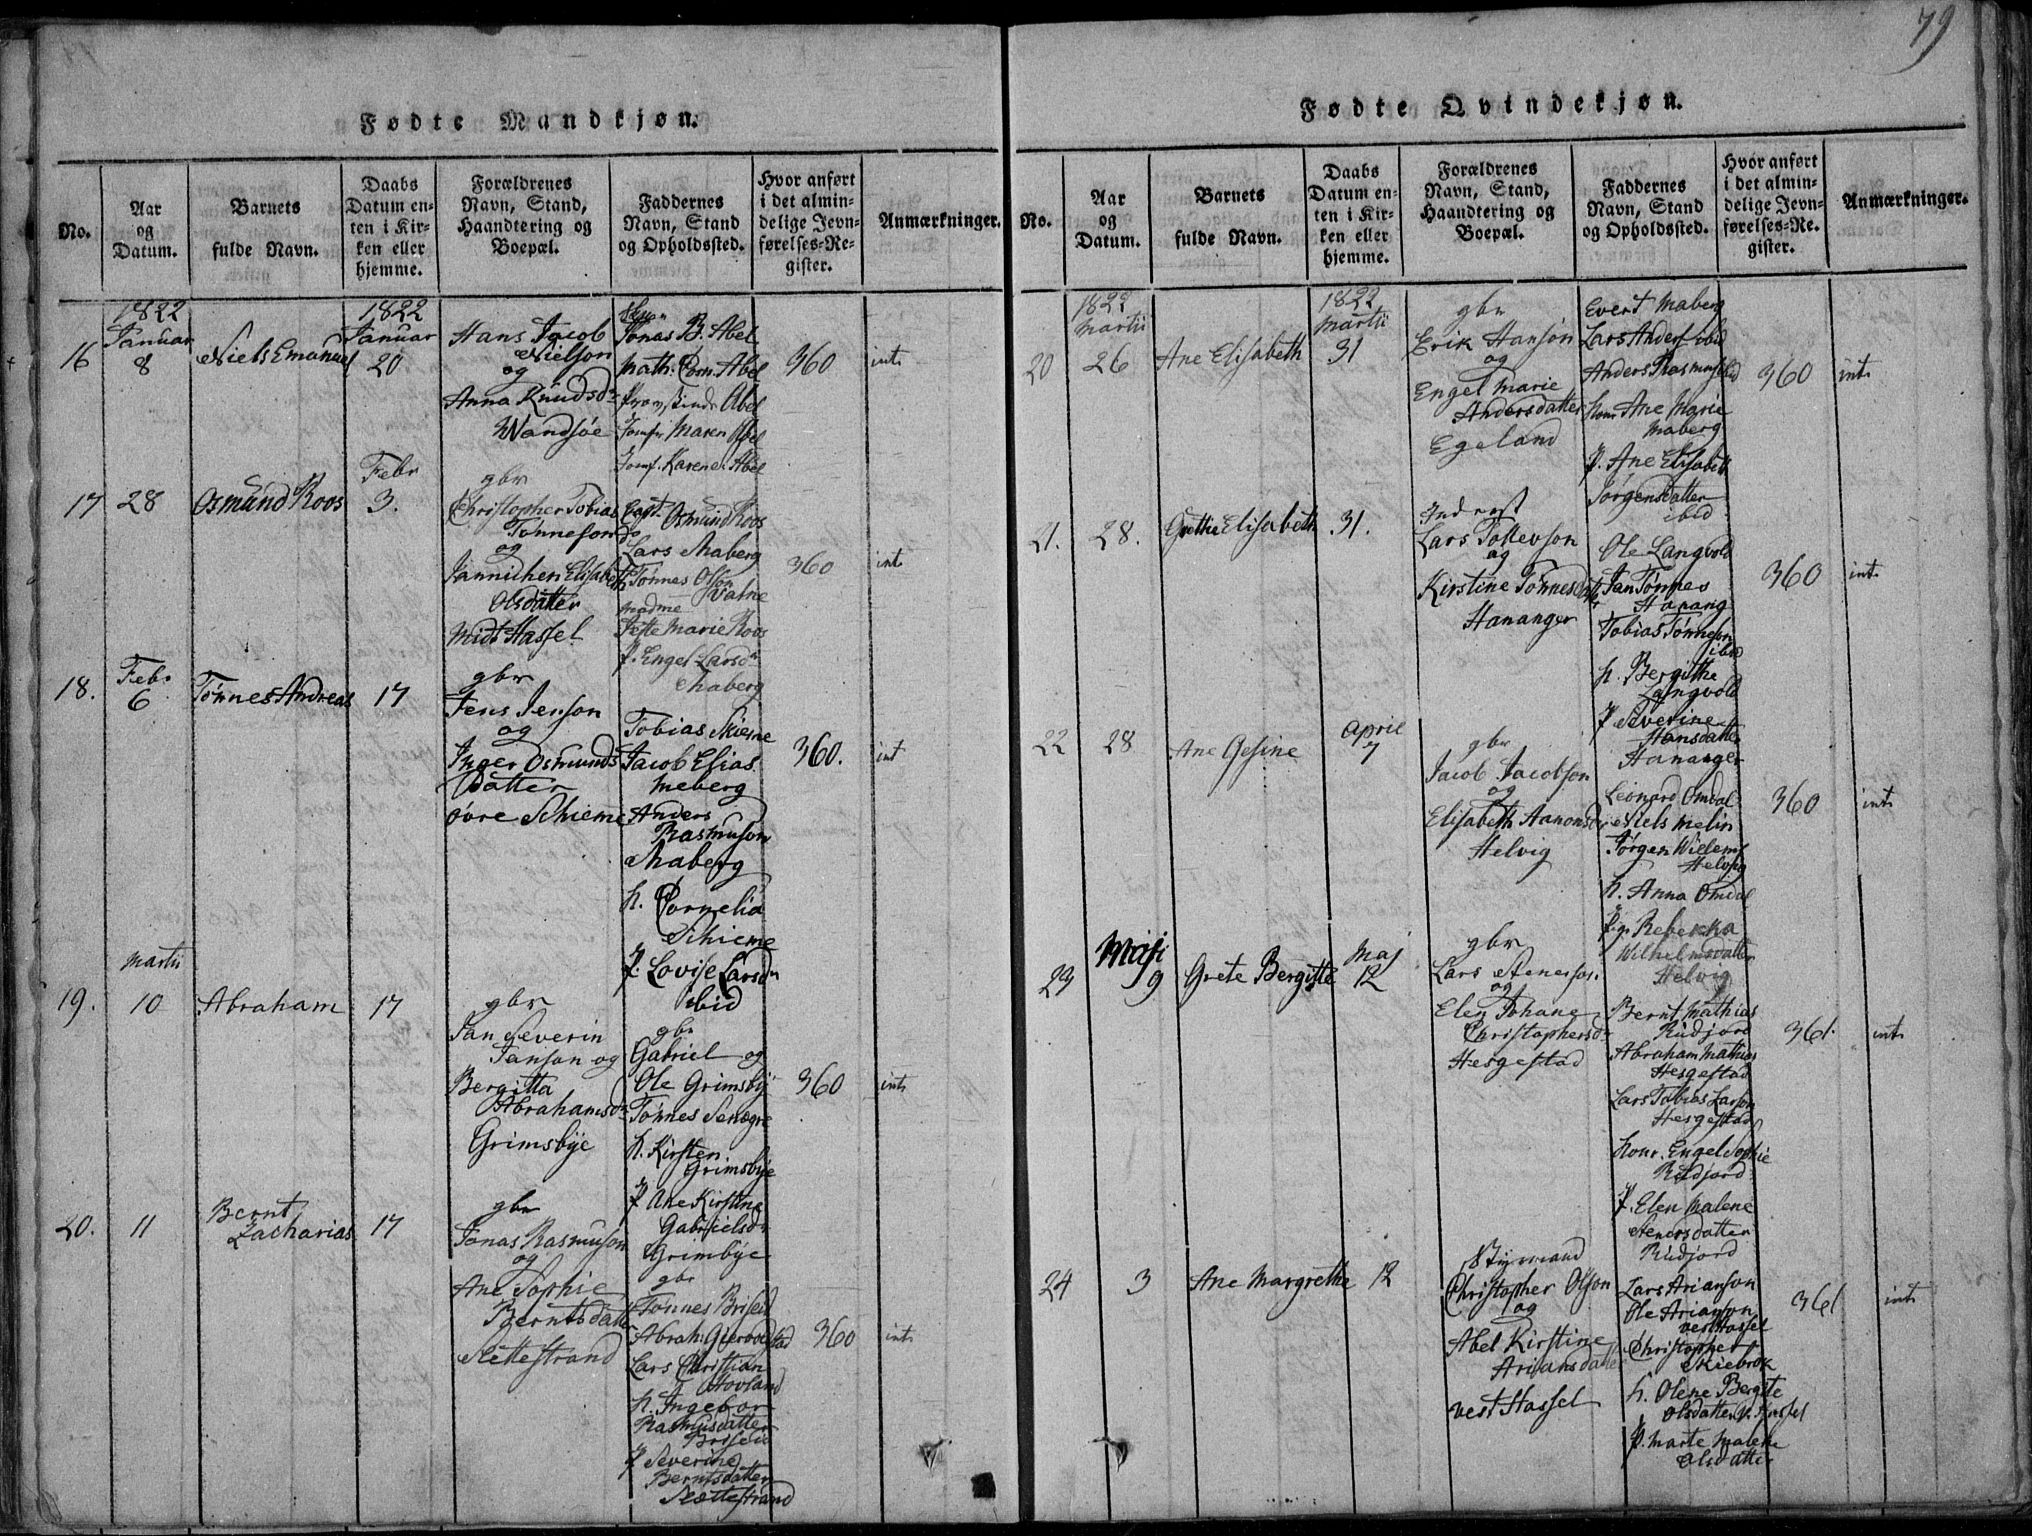 79
Fødte Mandkjøn.
No.
Aar og Datum.
Barnets fulde Navn.
Daabs Datum enten i Kirken eller hjemme.
Forældrenes Navn, Stand, Haandtering og Boepæl.
Faddernes Navn, Stand og Opholdssted.
Hvor anført i det almindelige Jevnførelses-Register.
Anmærkninger.
16
1822
Januar
8
Niels Emanuel
1822
Januar
20
Hans Jacob
Nielson
og
Anna Knudsdr
Wandsøe
Jonas B. Abel
Math. Corn. Abel
Abel
Jomfr Maren Abel
Jomf. Karene Abel
360
int
17
28
Osmund Roos
Febr
3.
gbr
Christopher Tobias
Tønneson
og
Jannichen Elisabeth
Olsdatter
Midt Hassel
Capt. Osmund Roos
Lars Maberg
Tønnes Olson
Vatne
Madme
Marie Roos
P. Engel Larsdr
Maberg
360
int
18.
Febr
6
Tønnes Andreas
17
gbr
Jens Jenson
og
Inger Osmunds
Datter
øvre Schieme
Tobias Skieme
Jacob Elias
Meberg
Anders
Rasmuson
Maberg
h. Cornelia
Schieme
P. Lovise Larsdr
ibid
360.
int
19.
Martii
10
Abraham
17
gbr
Jan Severin
Janson og
Bergitta
Abrahamsdr
Grimsbye
gbr
Gabriel og
Ole Grimsby
Tønnes
h. Kirsten
Grimsbye
P Ane Kirstine
Gabrielsdr
Grimbye
360
int
20.
11
Bernt
Zacharias
17
gbr
Jonas Rasmuson
og
Ane Sophie
Berntsdatter
Slettestrand
gbr
Tønnes Briseid
Abrah. Giervoldstad
Lars Christian
Hovland
h. Ingebor
Rasmusdatter
Briseid
P Severine
Berntsdatter
Slettestrand
360
int
Fødte Qvindekjøn.
No.
Aar og Datum.
Barnets fulde Navn.
Daabs Datum enten i Kirken eller hjemme.
Forældrenes Navn, Stand, Haandtering og Boepæl.
Faddernes Navn, Stand og Opholdssted.
Hvor anført i det almindelige Jevnførelses-Register.
Anmærkninger.
20
1822
Martii
26
Ane Elisabeth
1822
Martii
31
gbr
Erik Hanson
og
Engel Marie
Andersdatter
Egeland
Evert Maberg
Lars Anders ibid
Anders Rasmus ibid
Ane Marie
Maberg
P. Ane Elisabeth
Jørgensdatter
ibid
360
int
21.
28.
Grethe Elisabeth
31.
Inderst
Lars Tollevson
og
Kirstine Tønnesdatter
Hananger
Ole Langvold
Jan Tønnes
Hanang
Tobias Tønneson
ibid
h. Bergithe
Langvold
P Severine
Hansdatter
Hananger
360
int
22
28
Ane Gesine
April
7
gbr
Jacob Jacobson
og
Elisabeth Aanonsdr
Helvig
Leonard Omdal
Niels Melin
Jørgen Willems
Helvig
h. Anna Omdal
Pig. Rebekka
Wilhelmsdatter
Helvig
360
int
23
Maji
9
Grete Bergitte
Maj
12
gbr
Lars Stenerson
og
Elen Johane
Christophersdr
Hesgestad
Bernt Mathias
Rudjord
Abraham Mathias
Hesgestad
Lars Tobias Larson
Hesgestad
Engel Sophie
Rudjord
P. Elen Malene
Stenersdatter
Rudjord
361
int
24
3
Ane Margrethe
12
Styrmand
Christopher Olson
og
Abel Kirstine
Ariansdatter
vest Hassel
Lars Arianson
Ole Arianson
vest Hassel
Christopher
Skiebrok
h. Olene Bergite
Olsdatter V. Hassel
P. Marte Malene
Olsdatter
361
int